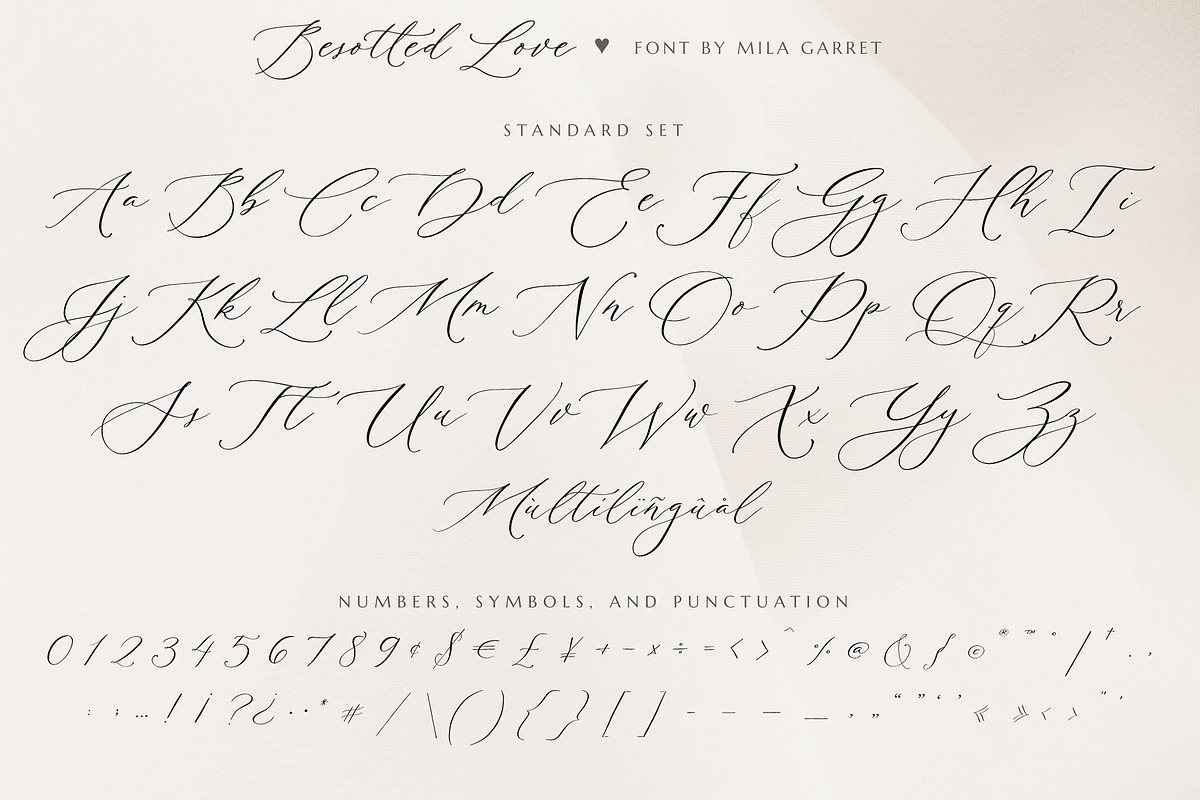 Besotted Love ♥ FONT BY MILA GARRET
STANDARD SET
Aa Bb Cc Dd Ee Ff Gg Hh Ii
Jj Kk Ll Mm Nn Oo Pp Qq Rr
Ss Tt Uu Vv Ww Xx Yy Zz
Mùltilïñgûål
NUMBERS, SYMBOLS, AND PUNCTUATION
0 1 2 3 4 5 6 7 8 9 ¢ $ € £ ¥ + − × ÷ = < > ^ % @ & ∫ © ® ™ ° / † . ,
: ; … ! ¡ ? ¿ · · * # / \ ( ) { } [ ] - – — _ ‚ „ “ ” ‘ ’ « » ‹ › " '